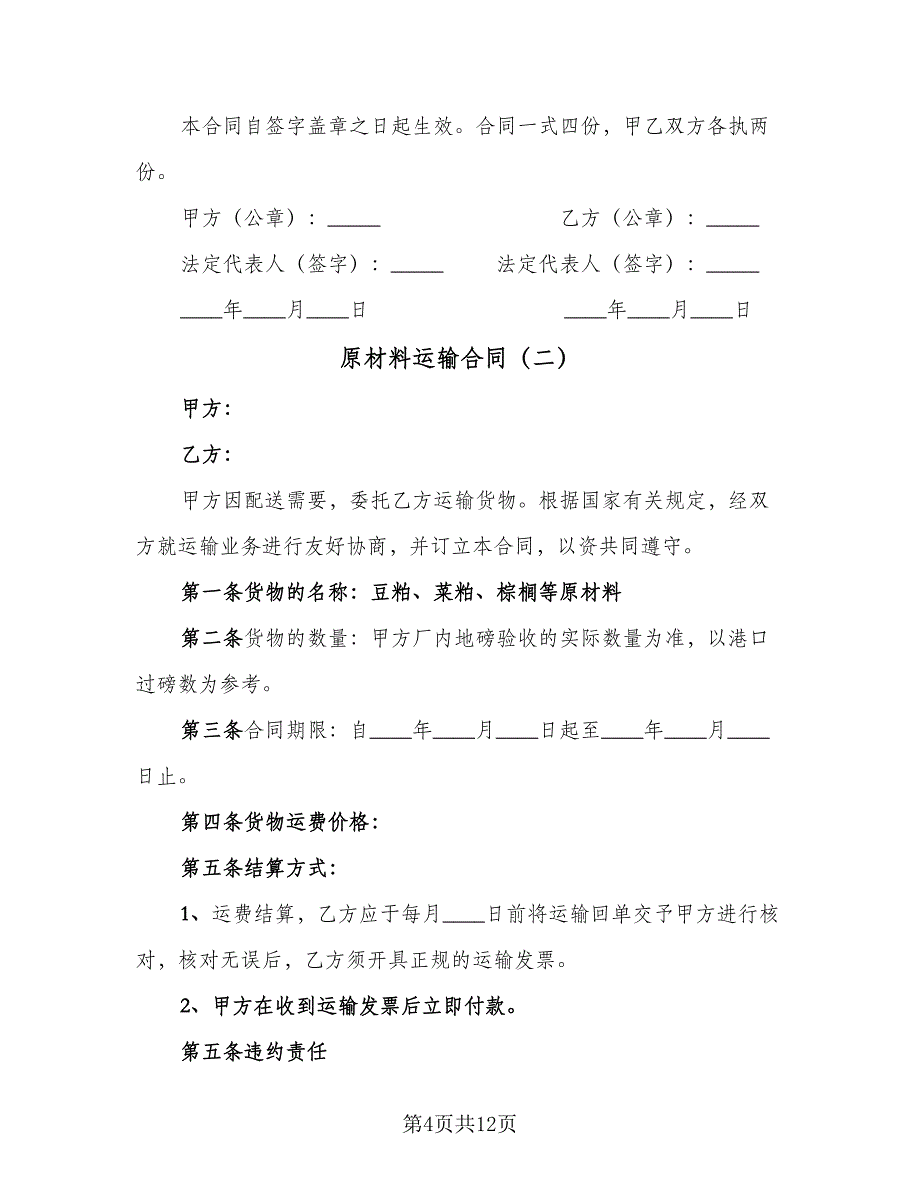 本合同自签字盖章之日起生效。合同一式四份，甲乙双方各执两
份。
甲方（公章）：_____ 乙方（公章）：_____
法定代表人（签字）：_____ 法定代表人（签字）：_____
____年____月____日 ____年____月____日
原材料运输合同（二）
甲方：
乙方：
甲方因配送需要，委托乙方运输货物。根据国家有关规定，经双
方就运输业务进行友好协商，并订立本合同，以资共同遵守。
第一条货物的名称：豆粕、菜粕、棕榈等原材料
第二条货物的数量：甲方厂内地磅验收的实际数量为准，以港口
过磅数为参考。
第三条合同期限：自____年____月____日起至____年____月____
日止。
第四条货物运费价格：
第五条结算方式：
1、运费结算，乙方应于每月____日前将运输回单交予甲方进行核
对，核对无误后，乙方须开具正规的运输发票。
2、甲方在收到运输发票后立即付款。
第五条违约责任
第4页共12页